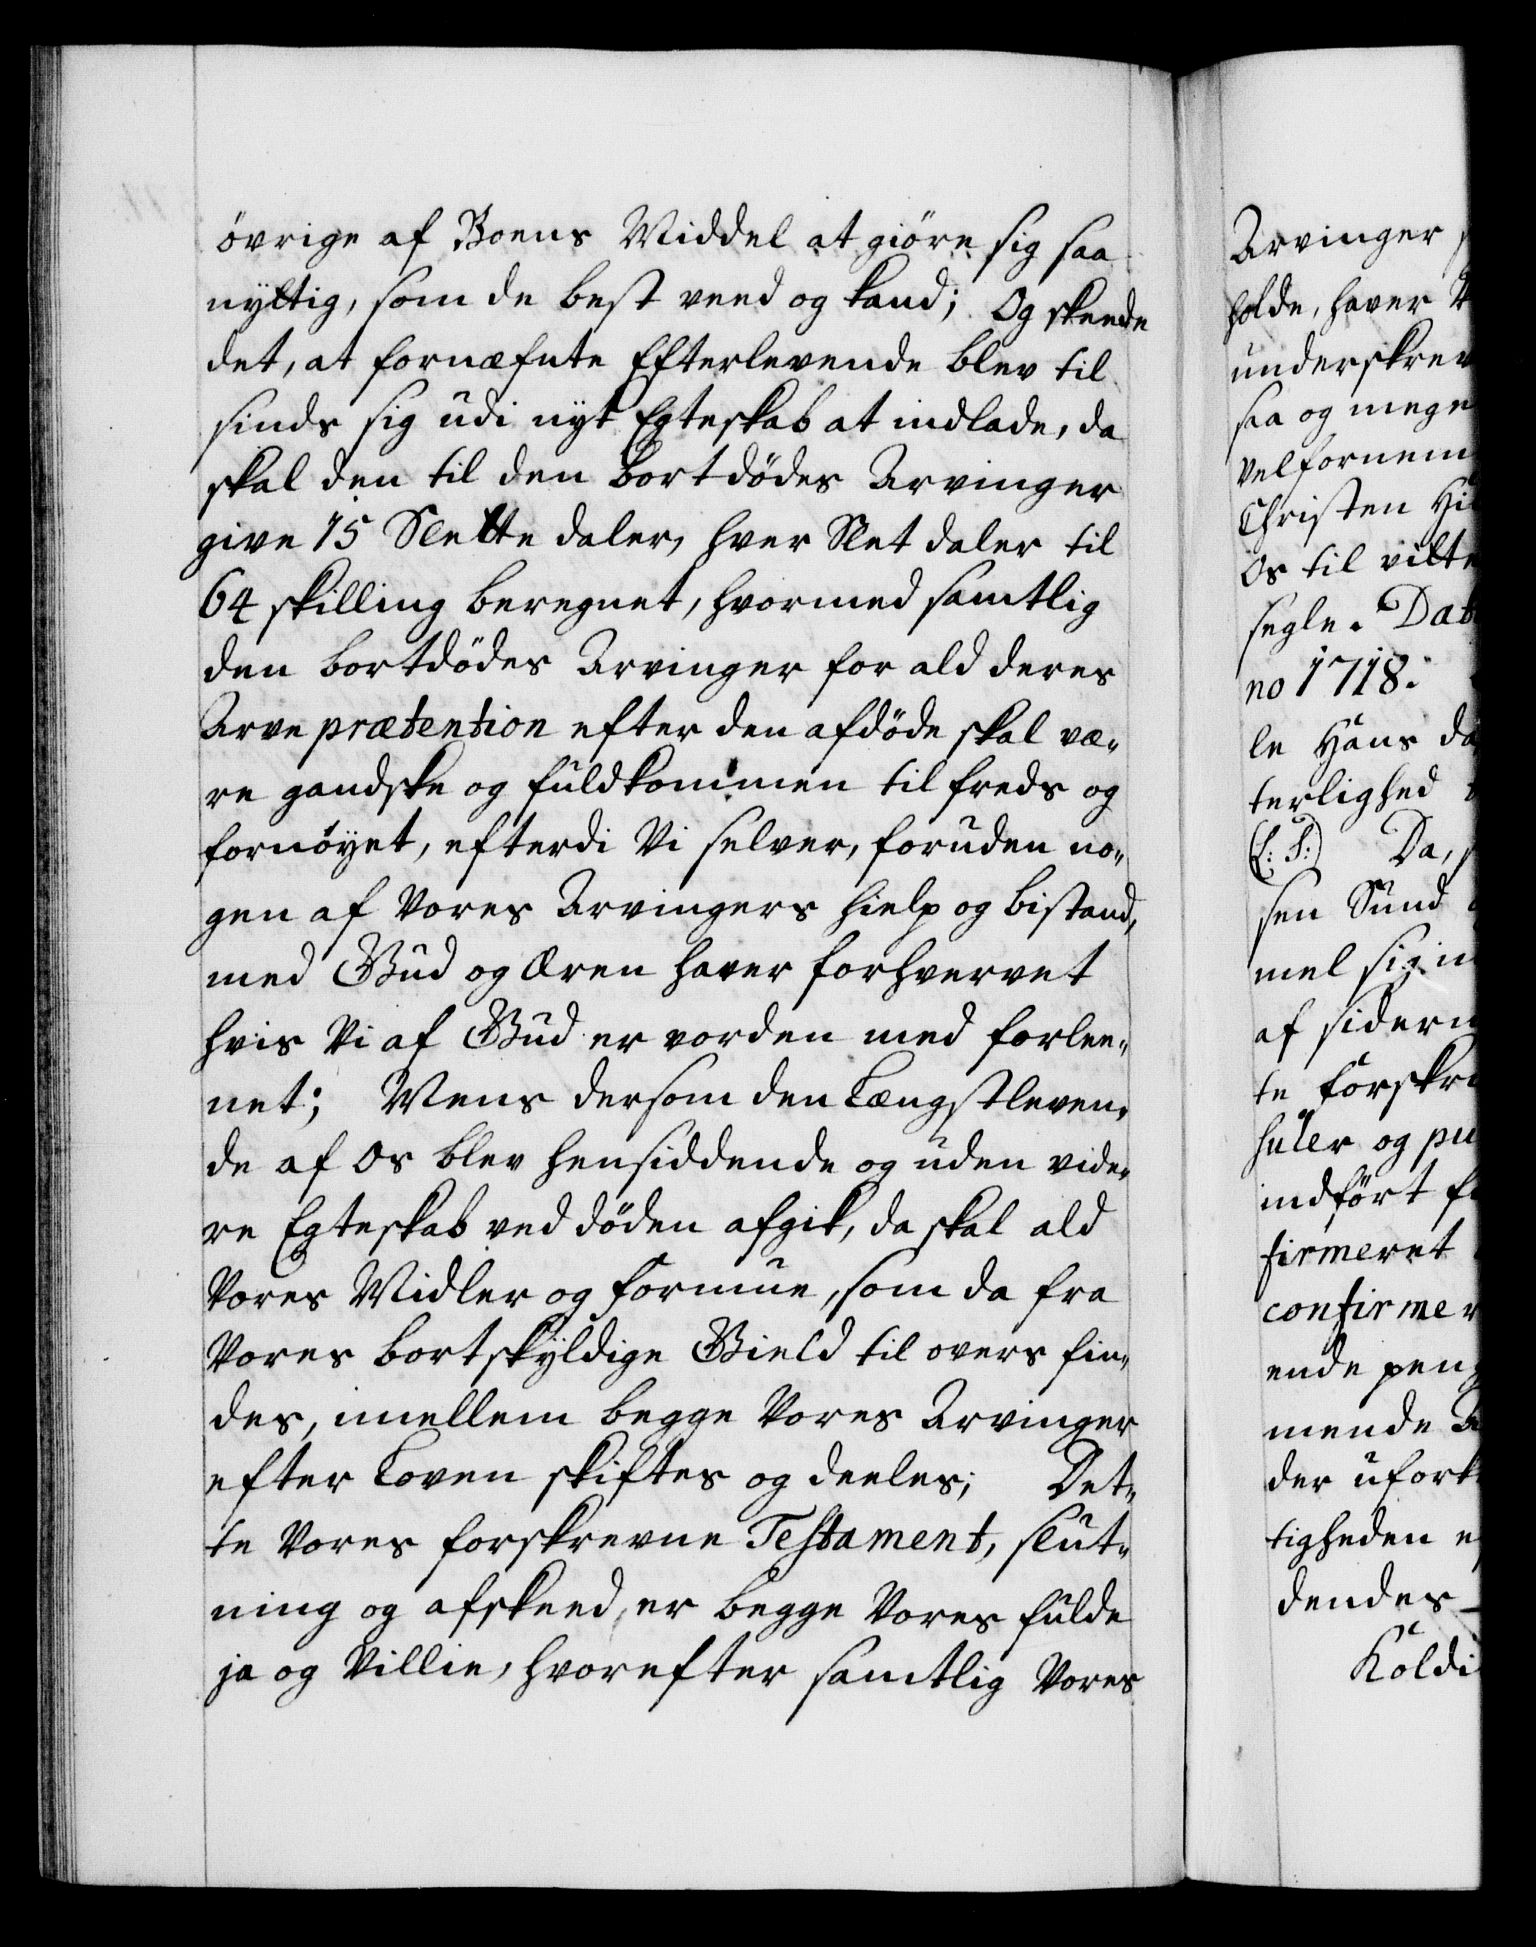 övrige af Boens Middel at giöre sig saa
nyttig, som de best veed og kand; Og skeede
det, at fornæfnte Efterlevende blev til
sinds sig udi nyt Egteskab at indlade, da
skal den til den bortdödes Arvinger
give 15 Slette daler, hver Slet daler til
64 skilling beregnet, hvormed samtlig
den bortdödes Arvinger for ald deres
Arve prætention efter den afdöde skal væ-
re gandske og fuldkommen til freds og
fornöyet, efterdi Vi selver, foruden no-
gen af Vores Arvingers hielp og bistand,
med Gud og Æren haver forhvervet
hvis Vi af Gud er vorden med forlee-
net; Mens dersom den Længstleven-
de af Os blev hensiddende og uden vide-
re Egteskab ved döden afgik, da skal ald
Vores Midler og formue, som da fra
Vores bortskyldige Gield til overs fin-
des, imellem begge Vores Arvinger
efter Loven skiftes og deeles; Det-
te Vores forskrevne Testament, slut-
ning og afskeed, er begge Vores fulde
ja og Villie, hvorefter samtlig Vores
Arvinger
holde, haver
underskrev
saa og mege
Velfornem
Christen Hi
Os til vilte
segle. Dat
no 1718.
le Hans da
terlighed
(L: S:) Da,
sen Sund
mel sig in
af sidern
te forskre
huler og pu
indfört
firmeret
confirmer
ende peng
mende
der ufork
tigheden
dendes
Koldi